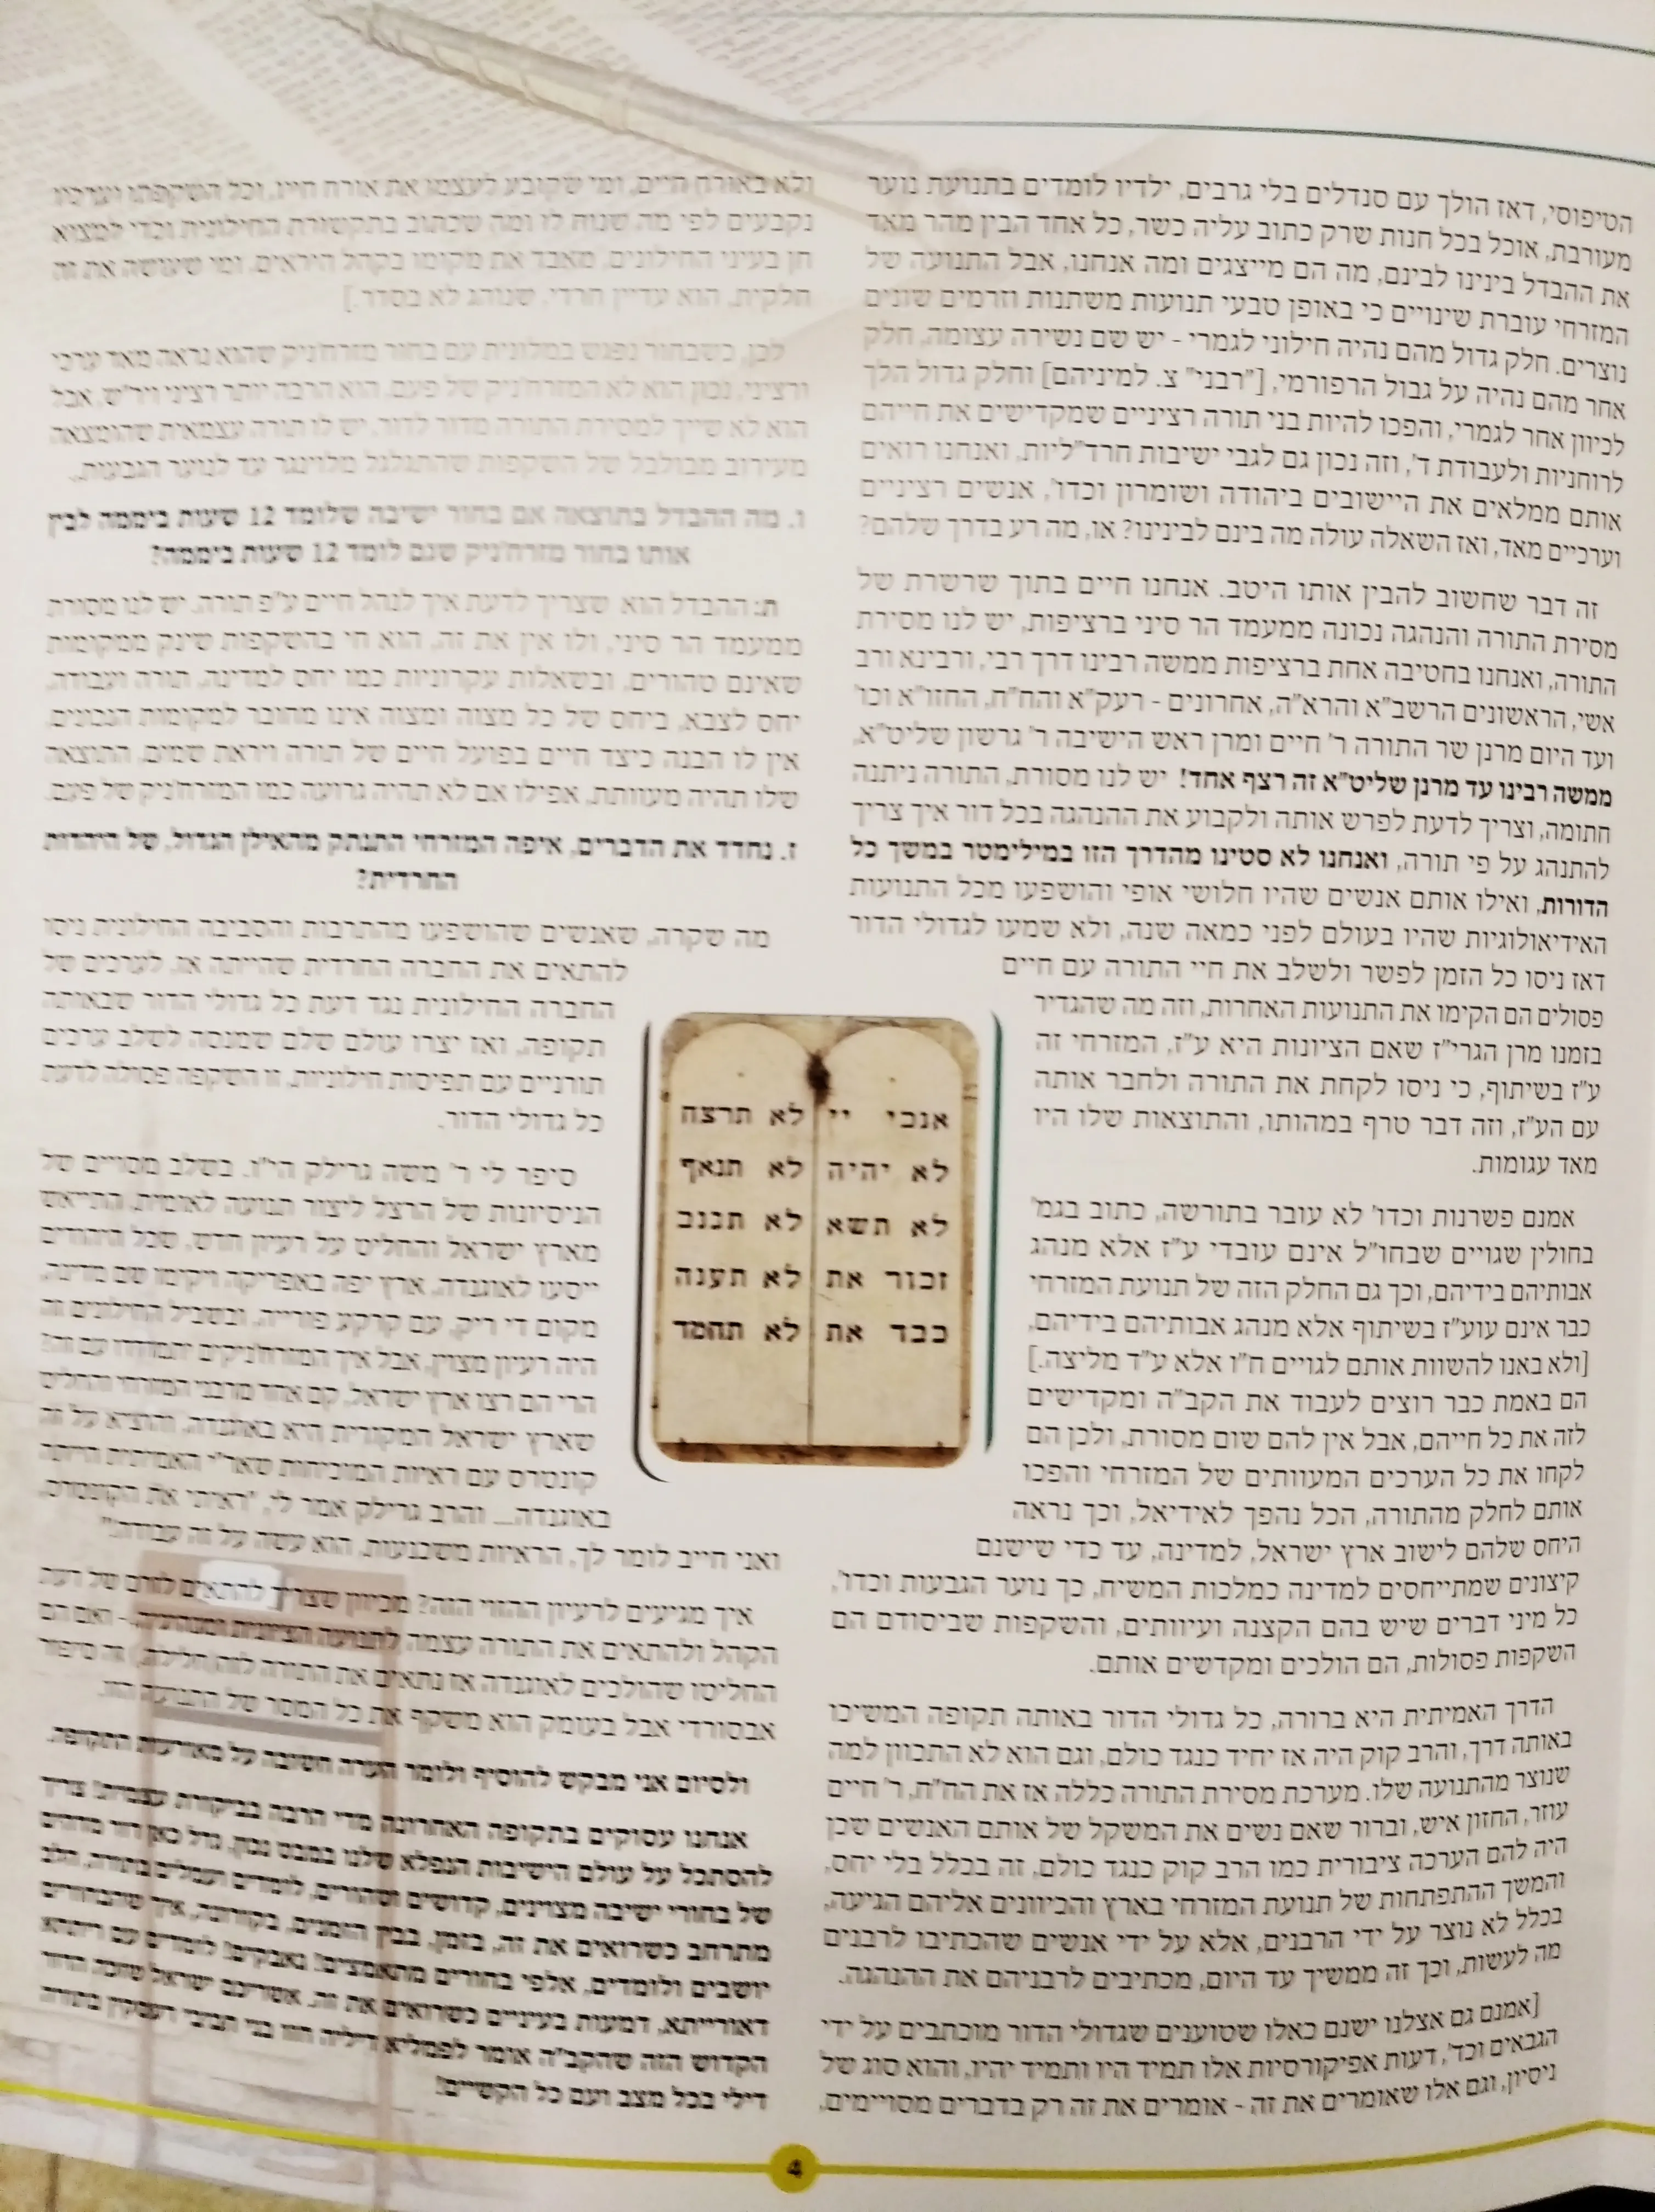 הטיפוסי, דאז הולך עם סנדלים בלי גרבים, ילדיו לומדים בתנועת נוער
מעורבת, אוכל בכל חנות שרק כתוב עליה כשר, כל אחד הבין מהר מאד
את ההבדל בינינו לבינם, מה הם מייצגים ומה אנחנו, אבל התנועה של
המזרחי עוברת שינויים כי באופן טבעי תנועות משתנות וזרמים שונים
נוצרים. חלק גדול מהם נהיה חילוני לגמרי - יש שם נשירה עצומה, חלק
אחר מהם נהיה על גבול הרפורמי, ["רבני" צ. למיניהם] וחלק גדול הלך
לכיוון אחר לגמרי, והפכו להיות בני תורה רציניים שמקדישים את חייהם
לרוחניות ולעבודת ד', וזה נכון גם לגבי ישיבות חרד"ליות, ואנחנו רואים
אותם ממלאים את היישובים ביהודה ושומרון וכדו', אנשים רציניים
וערכיים מאד, ואז השאלה עולה מה בינם לבינינו? או, מה רע בדרך שלהם?
זה דבר שחשוב להבין אותו היטב. אנחנו חיים בתוך שרשרת של
מסירת התורה והנהגה נכונה ממעמד הר סיני ברציפות, יש לנו מסירת
התורה, ואנחנו בחטיבה אחת ברציפות ממשה רבינו דרך רבי, ורבינא ורב
אשי, הראשונים הרשב"א והרא"ה, אחרונים - רעק"א והח"ח, החזו"א וכו'
ועד היום מרנן שר התורה ר' חיים ומרן ראש הישיבה ר' גרשון שליט"א,
ממשה רבינו עד מרנן שליט"א זה רצף אחד! יש לנו מסורת, התורה ניתנה
חתומה, וצריך לדעת לפרש אותה ולקבוע את ההנהגה בכל דור איך צריך
להתנהג על פי תורה, ואנחנו לא סטינו מהדרך הזו במילימטר במשך כל
הדורות, ואילו אותם אנשים שהיו חלושי אופי והושפעו מכל התנועות
האידיאולוגיות שהיו בעולם לפני כמאה שנה, ולא שמעו לגדולי הדור
דאז ניסו כל הזמן לפשר ולשלב את חיי התורה עם חיים
פסולים הם הקימו את התנועות האחרות, וזה מה שהגדיר
בזמנו מרן הגרי"ז שאם הציונות היא ע"ז, המזרחי זה
ע"ז בשיתוף, כי ניסו לקחת את התורה ולחבר אותה
עם הע"ז, וזה דבר טרף במהותו, והתוצאות שלו היו
מאד עגומות.
אמנם פשרנות וכדו' לא עובר בתורשה, כתוב בגמ'
בחולין שגויים שבחו"ל אינם עובדי ע"ז אלא מנהג
אבותיהם בידיהם, וכך גם החלק הזה של תנועת המזרחי
כבר אינם עוע"ז בשיתוף אלא מנהג אבותיהם בידיהם,
[ולא באנו להשוות אותם לגויים ח"ו אלא ע"ד מליצה.]
הם באמת כבר רוצים לעבוד את הקב"ה ומקדישים
לזה את כל חייהם, אבל אין להם שום מסורת, ולכן הם
לקחו את כל הערכים המעוותים של המזרחי והפכו
אותם לחלק מהתורה, הכל נהפך לאידיאל, וכך נראה
היחס שלהם לישוב ארץ ישראל, למדינה, עד כדי שישנם
קיצונים שמתייחסים למדינה כמלכות המשיח, כך נוער הגבעות וכדו',
כל מיני דברים שיש בהם הקצנה ועיוותים, והשקפות שביסודם הם
השקפות פסולות, הם הולכים ומקדשים אותם.
הדרך האמיתית היא ברורה, כל גדולי הדור באותה תקופה המשיכו
באותה דרך, והרב קוק היה אז יחיד כנגד כולם, וגם הוא לא התכוון למה
שנוצר מהתנועה שלו. מערכת מסירת התורה כללה אז את הח"ח, ר' חיים
עוזר, החזון איש, וברור שאם נשים את המשקל של אותם האנשים שכן
היה להם הערכה ציבורית כמו הרב קוק כנגד כולם, זה בכלל בלי יחס,
והמשך ההתפתחות של תנועת המזרחי בארץ והכיוונים אליהם הגיעה,
בכלל לא נוצר על ידי הרבנים, אלא על ידי אנשים שהכתיבו לרבנים
מה לעשות, וכך זה ממשיך עד היום, מכתיבים לרבניהם את ההנהגה.
[אמנם גם אצלנו ישנם כאלו שטוענים שגדולי הדור מוכתבים על ידי
הגבאים וכד', דעות אפיקורסיות אלו תמיד היו ותמיד יהיו, והוא סוג של
ניסיון, וגם אלו שאומרים את זה - אומרים את זה רק בדברים מסויימים,
ולא באורח חיים, ומי שקובע לעצמו את אורח חייו, וכל השקפתו וערכיו
נקבעים לפי מה שנוח לו ומה שכתוב בתקשורת החילונית וכדי למצוא
חן בעיני החילונים, מאבד את מקומו בקהל היראים, ומי שעושה את זה
חלקית, הוא עדיין חרדי, שנוהג לא בסדר.]
לכן, כשבחור נפגש במלונית עם בחור מזרחניק שהוא נראה מאד ערכי
ורציני, נכון הוא לא המזרחניק של פעם, הוא הרבה יותר רציני ויר"ש, אבל
הוא לא שייך למסירת התורה מדור לדור, יש לו תורה עצמאית שהומצאה
מעירוב מבולבל של השקפות שהתגלגל מלוינגר עד לנוער הגבעות.
ו. מה ההבדל בתוצאה אם בחור ישיבה שלומד 12 שעות ביממה לבין
אותו בחור מזרחניק שגם לומד 12 שעות ביממה?
ת: ההבדל הוא שצריך לדעת איך לנהל חיים ע"פ תורה, יש לנו מסורת
ממעמד הר סיני, ולו אין את זה, הוא חי בהשקפות שינק ממקומות
שאינם טהורים, ובשאלות עקרוניות כמו יחס למדינה, תורה ועבודה,
יחס לצבא, ביחס של כל מצוה ומצוה אינו מחובר למקומות הנכונים,
אין לו הבנה כיצד חיים בפועל חיים של תורה ויראת שמים, התוצאה
שלו תהיה מעוותת, אפילו אם לא תהיה גרועה כמו המזרחניק של פעם.
ז. נחדד את הדברים, איפה המזרחי התנתק מהאילן הגדול, של היהדות
החרדית?
מה שקרה, שאנשים שהושפעו מהתרבות והסביבה החילונית ניסו
להתאים את החברה החרדית שהייתה אז, לערכים של
החברה החילונית נגד דעת כל גדולי הדור שבאותה
תקופה, ואז יצרו עולם שלם שמנסה לשלב ערכים
תורניים עם תפיסות חילוניות, זו השקפה פסולה לדעת
כל גדולי הדור.
סיפר לי ר' משה גרילק הי"ו, בשלב מסויים של
הניסיונות של הרצל ליצור תנועה לאומית, התייאש
מארץ ישראל והחליט על רעיון חדש, שכל היהודים
ייסעו לאוגנדה, ארץ יפה באפריקה ויקימו שם מדינה,
מקום די ריק, עם קרקע פורייה, ובשביל החילונים זה
היה רעיון מצוין, אבל איך המזרחניקים יתמודדו עם זה?
הרי הם רצו ארץ ישראל, קם אחד מרבני המזרחי והחליט
שארץ ישראל המקורית היא באוגנדה, והוציא על זה
קונטרס עם ראיות המוכיחות שאר"י האמיתית הייתה
באוגנדה... והרב גרילק אמר לי, "ראיתי את הקונטרס,
ואני חייב לומר לך, הראיות משכנעות, הוא עשה על זה עבודה!"
איך מגיעים לרעיון ההזוי הזה? מכיוון שצריך להתאים לזרם של דעת
הקהל ולהתאים את התורה עצמה לתנועה הציונית ומנהגיה, - ואם הם
החליטו שהולכים לאוגנדה אז נתאים את התורה לזה (חלילה,) זה סיפור
אבסורדי אבל בעומק הוא משקף את כל המסר של התנועה הזו.
ולסיום אני מבקש להוסיף ולומר הערה חשובה על מאורעות התקופה.
אנחנו עסוקים בתקופה האחרונה מדי הרבה בביקורת עצמית! צריך
להסתכל על עולם הישיבות הנפלא שלנו במבט נכון, גדל כאן דור מדהים
של בחורי ישיבה מצוינים, קדושים וטהורים, לומדים ועמלים בתורה, הלב
מתרחב כשרואים את זה, בזמן, בבין הזמנים, בקורונה, איך שהבחורים
יושבים ולומדים, אלפי בחורים מתאמצים! נאבקים! לומדים עם ריתחא
דאורייתא, דמעות בעיניים כשרואים את זה, אשריכם ישראל שזכה הדור
הקדוש הזה שהקב"ה אומר לפמליא דיליה חזו בני חביבי דעסקין בתורה
דילי בכל מצב ועם כל הקשיים!
אנכי יי לא תרצח
לא יהיה לא תנאף
לא תשא לא תגנב
זכור את לא תענה
כבד את לא תחמד
4